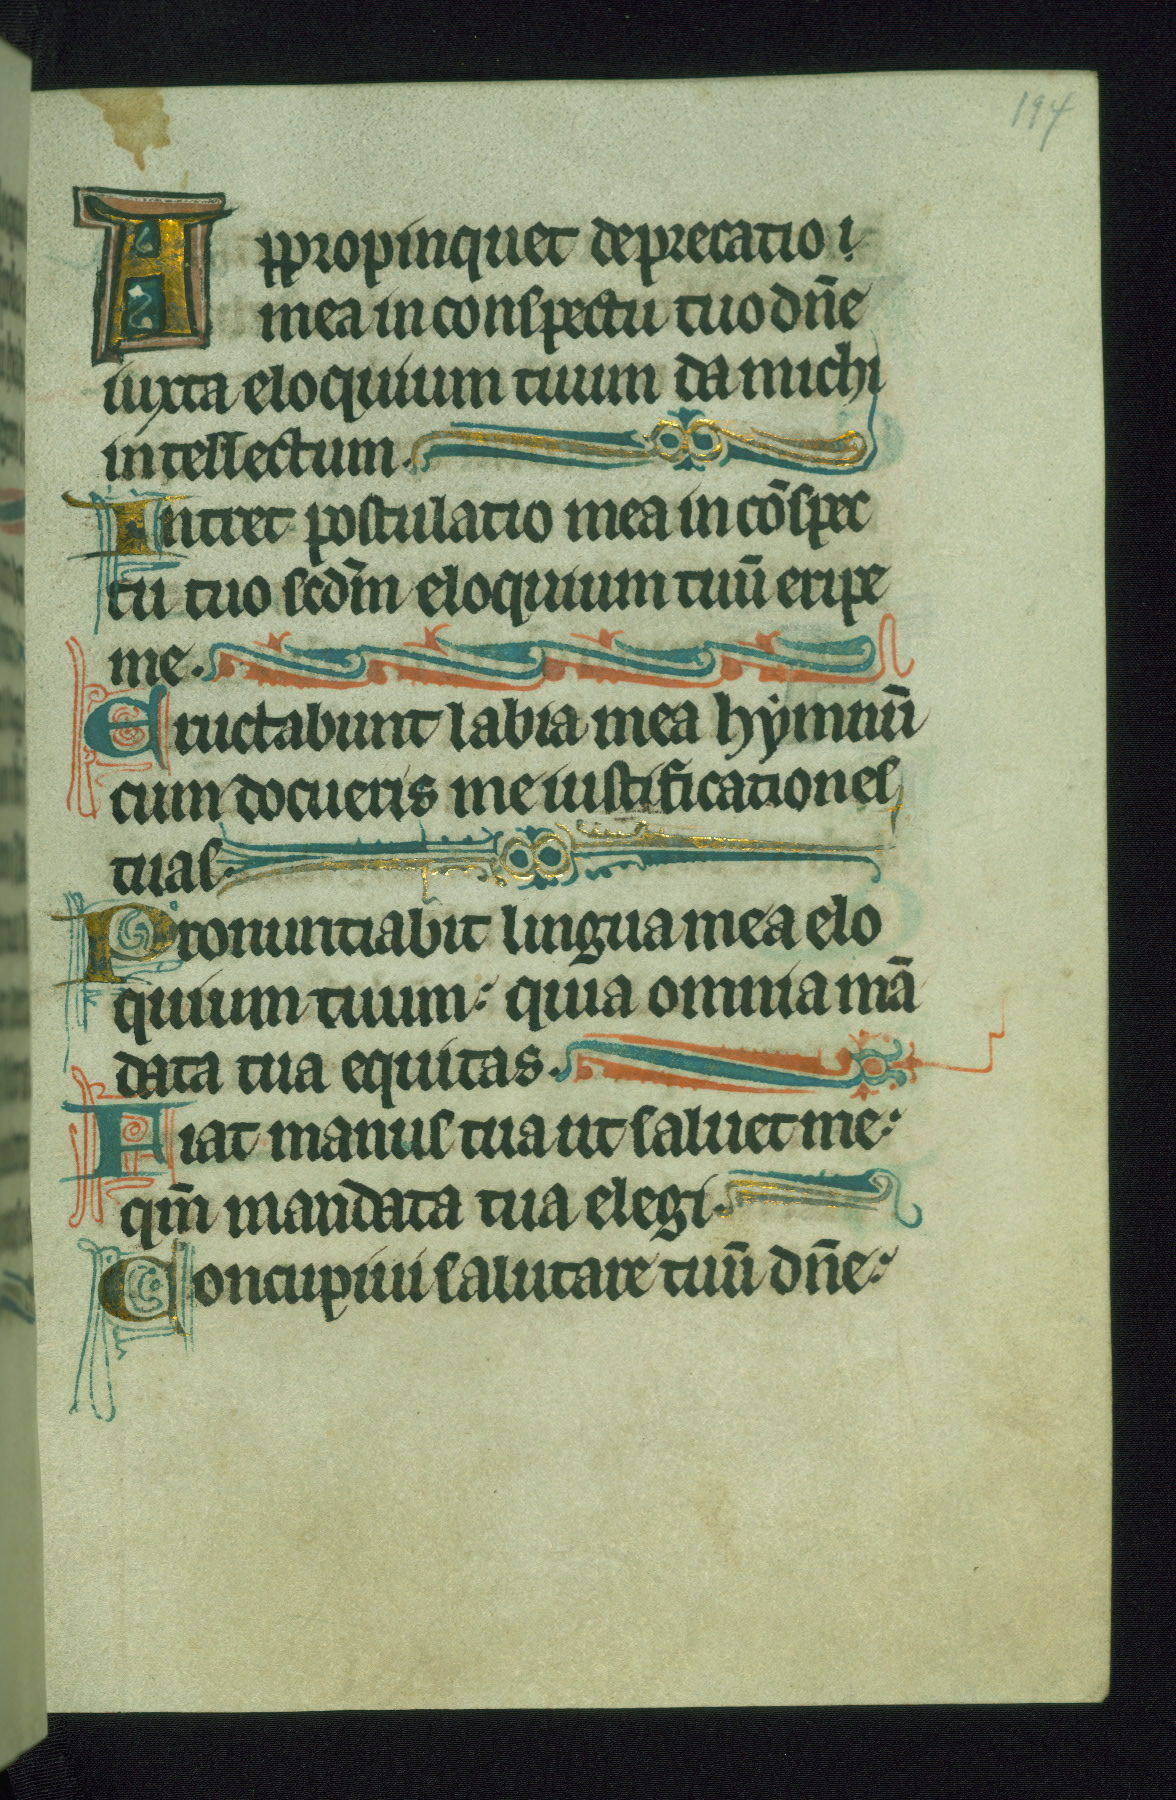 194
Appropinquet deprecatio i
mea in conspectu tuo dñe
iuxta eloquium tuum da michi
intellectum.
Intret postulatio mea in cōspec
tu tuo scdm̄ eloquium tuū eripe
me.
Eructabunt labia mea hẏmnū
cum docueris me iustificationes
tuas.
Pronuntiabit lingua mea elo
quium tuum: quia omnia mā
data tua equitas.
Fiat manus tua ut saluet me:
qm̄ mandata tua elegi.
Concupiui salutare tuū dñe: